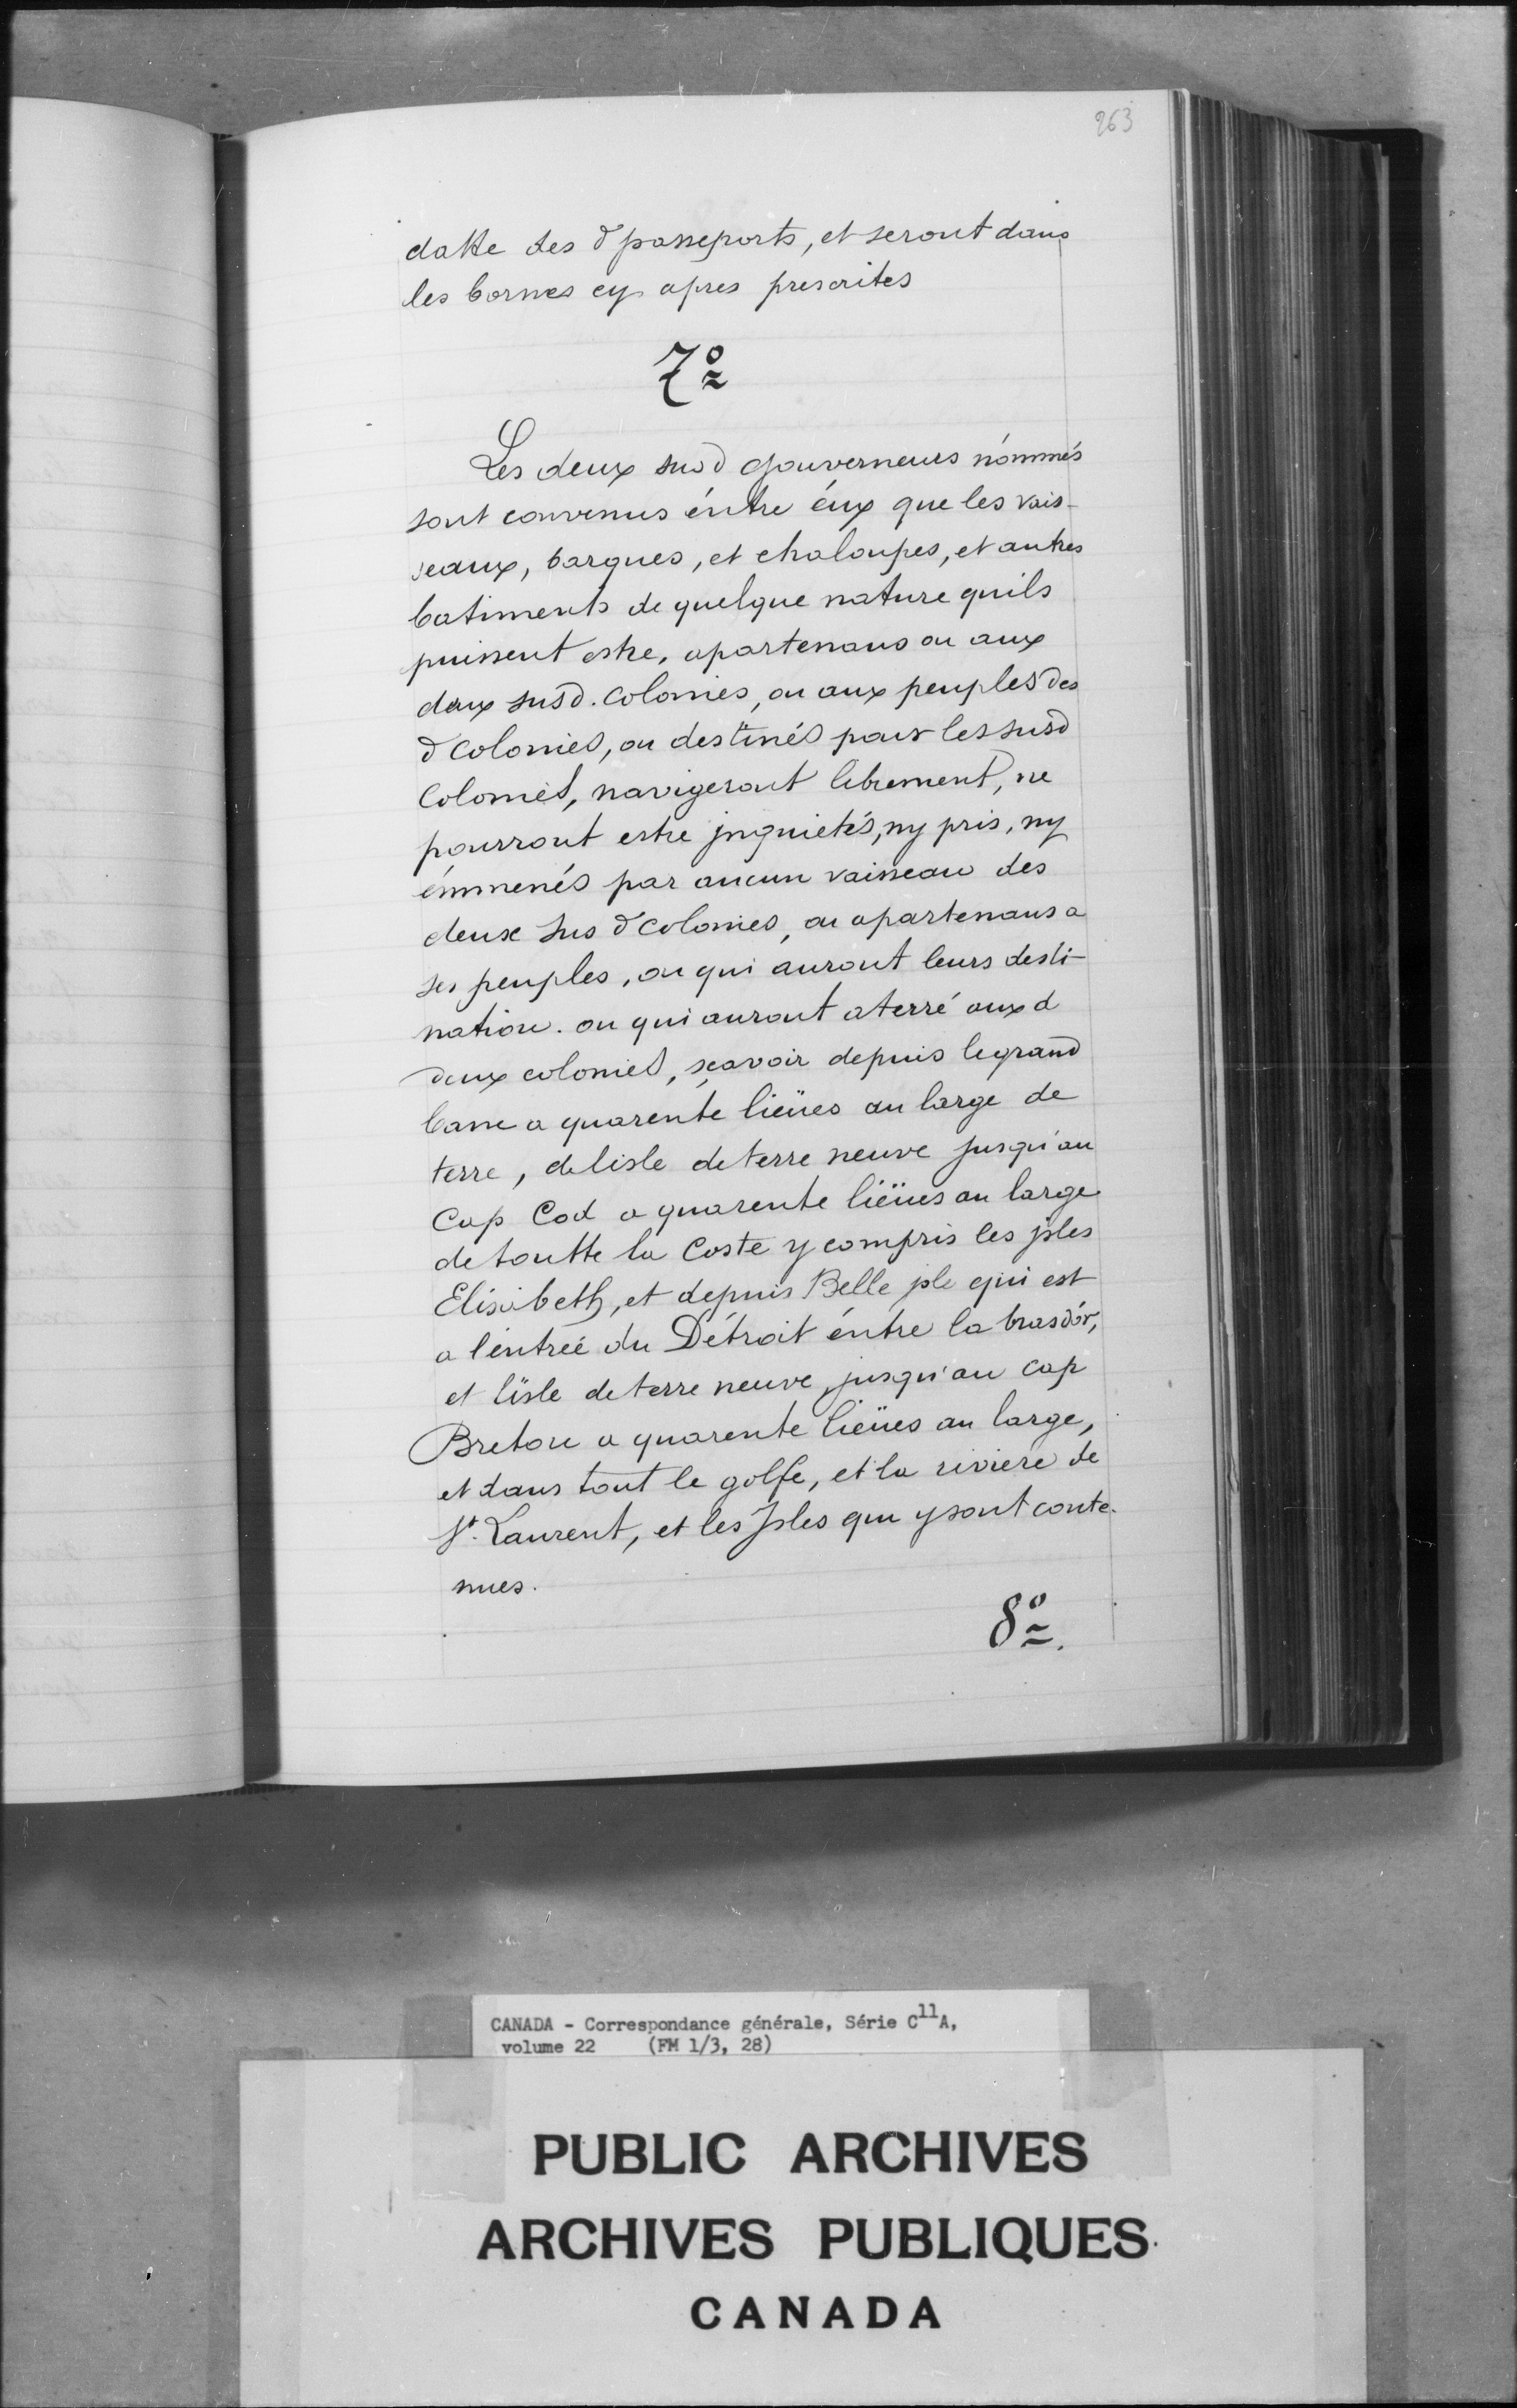 263
datte des d passeports, et seront dans
les bornes cy apres prescrites
7º
Les deux sus d gouverneurs nómmés
sont convenus éntre éux que les vais-
seaux, barques, et chaloupes, et autres
batiments de quelque nature quils
puissent estre, apartenans ou aux
deux susd. colonies, ou aux peuples des
d colonies, ou destinés pour les susd
Colonies, navigeront librement, ne
pourront estre jnquietés, ny pris, ny
émmenés par aucun vaisseau des
deux sus d colonies, ou apartenans a
ses peuples, ou qui auront leurs desti-
nation. ou qui auront aterré aux d
deux colonies, sçavoir depuis legrand
banc a quarente lieües au large de
terre, delisle de terre neuve jusqu'au
Cap Cod a quarente lieües au large
de toutte la Coste y compris les jsles
Elisabeth, et depuis Belle jsle qui est
a léntreé du Détroit éntre la brasdór,
et lisle de terre neuve, jusqu'au cap
Breton a quarente lieües au large,
et dans tout le golfe, et la riviere de
St. Laurent, et les Jsles qui y sont conte-
nues.
8º.
CANADA - Correspondance générale, Série C11A,
volume 22 (FM 1/3, 28)
PUBLIC ARCHIVES
ARCHIVES PUBLIQUES
CANADA